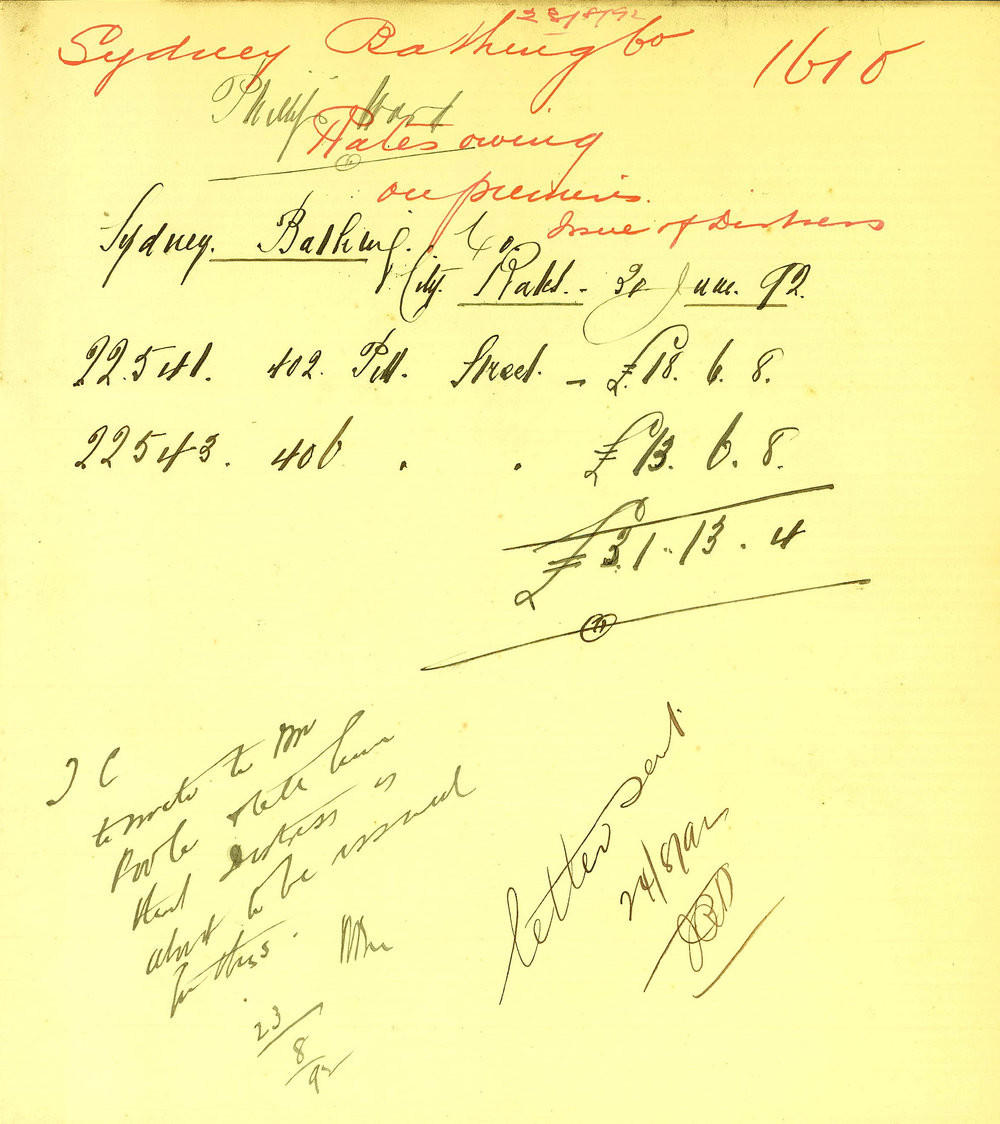 23/8/92
Sydney Bathing Co
1610
Phillip Ward
Rates owing
on premises.
Issue of Distress
Sydney. Bathing. Co.
City. Rates. - 30 June. 92.
22.541. 402. Pitt. Street. - £18. 6. 8.
22543. 406 . . £13. 6. 8.
£31. 13. 4
to write to Mr
Poole & tell him
that distress is
about to be issued
for this.
23/8/92
letter sent.
24/8/92